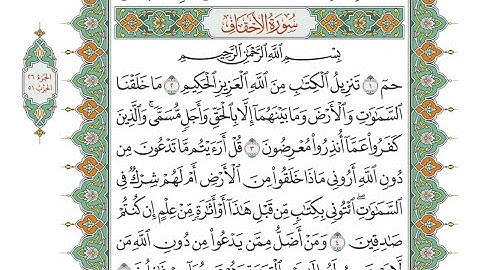 سُورَةُ الأَحْقَافِ
الجزء ٢٦
الحزب ٥١
بِسْمِ اللَّهِ الرَّحْمَٰنِ الرَّحِيمِ
حمٓ ١ تَنزِيلُ الْكِتَٰبِ مِنَ اللَّهِ الْعَزِيزِ الْحَكِيمِ ٢ مَا خَلَقْنَا
السَّمَٰوَٰتِ وَالْأَرْضَ وَمَا بَيْنَهُمَآ إِلَّا بِالْحَقِّ وَأَجَلٍ مُّسَمًّى ۚ وَالَّذِينَ
كَفَرُوا۟ عَمَّآ أُنذِرُوا۟ مُعْرِضُونَ ٣ قُلْ أَرَءَيْتُم مَّا تَدْعُونَ مِن
دُونِ اللَّهِ أَرُونِى مَاذَا خَلَقُوا۟ مِنَ الْأَرْضِ أَمْ لَهُمْ شِرْكٌ فِى
السَّمَٰوَٰتِ ۖ ائْتُونِى بِكِتَٰبٍ مِّن قَبْلِ هَٰذَآ أَوْ أَثَٰرَةٍ مِّنْ عِلْمٍ إِن كُنتُمْ
صَٰدِقِينَ ٤ وَمَنْ أَضَلُّ مِمَّن يَدْعُوا۟ مِن دُونِ اللَّهِ مَن